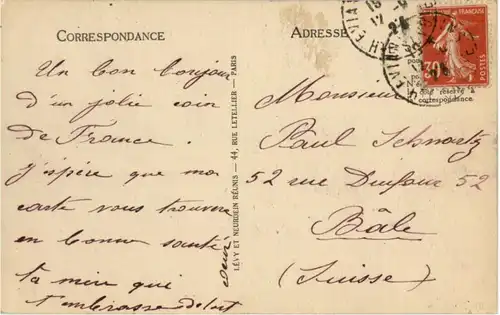 CORRESPONDANCE
Un bon bonjour
d'un jolie coin
de France.
J'espère que ma
carte vous trouvera
en bonne santé
ta mère qui
t'embrasse de tout
cœur
LÉVY ET NEURDEIN RÉUNIS — 44, RUE LETELLIER — PARIS
ADRESSE
FRANÇAISE
correspondance.
Monsieur
Paul Schwartz
52 rue Dufour 52
Bâle
(Suisse)